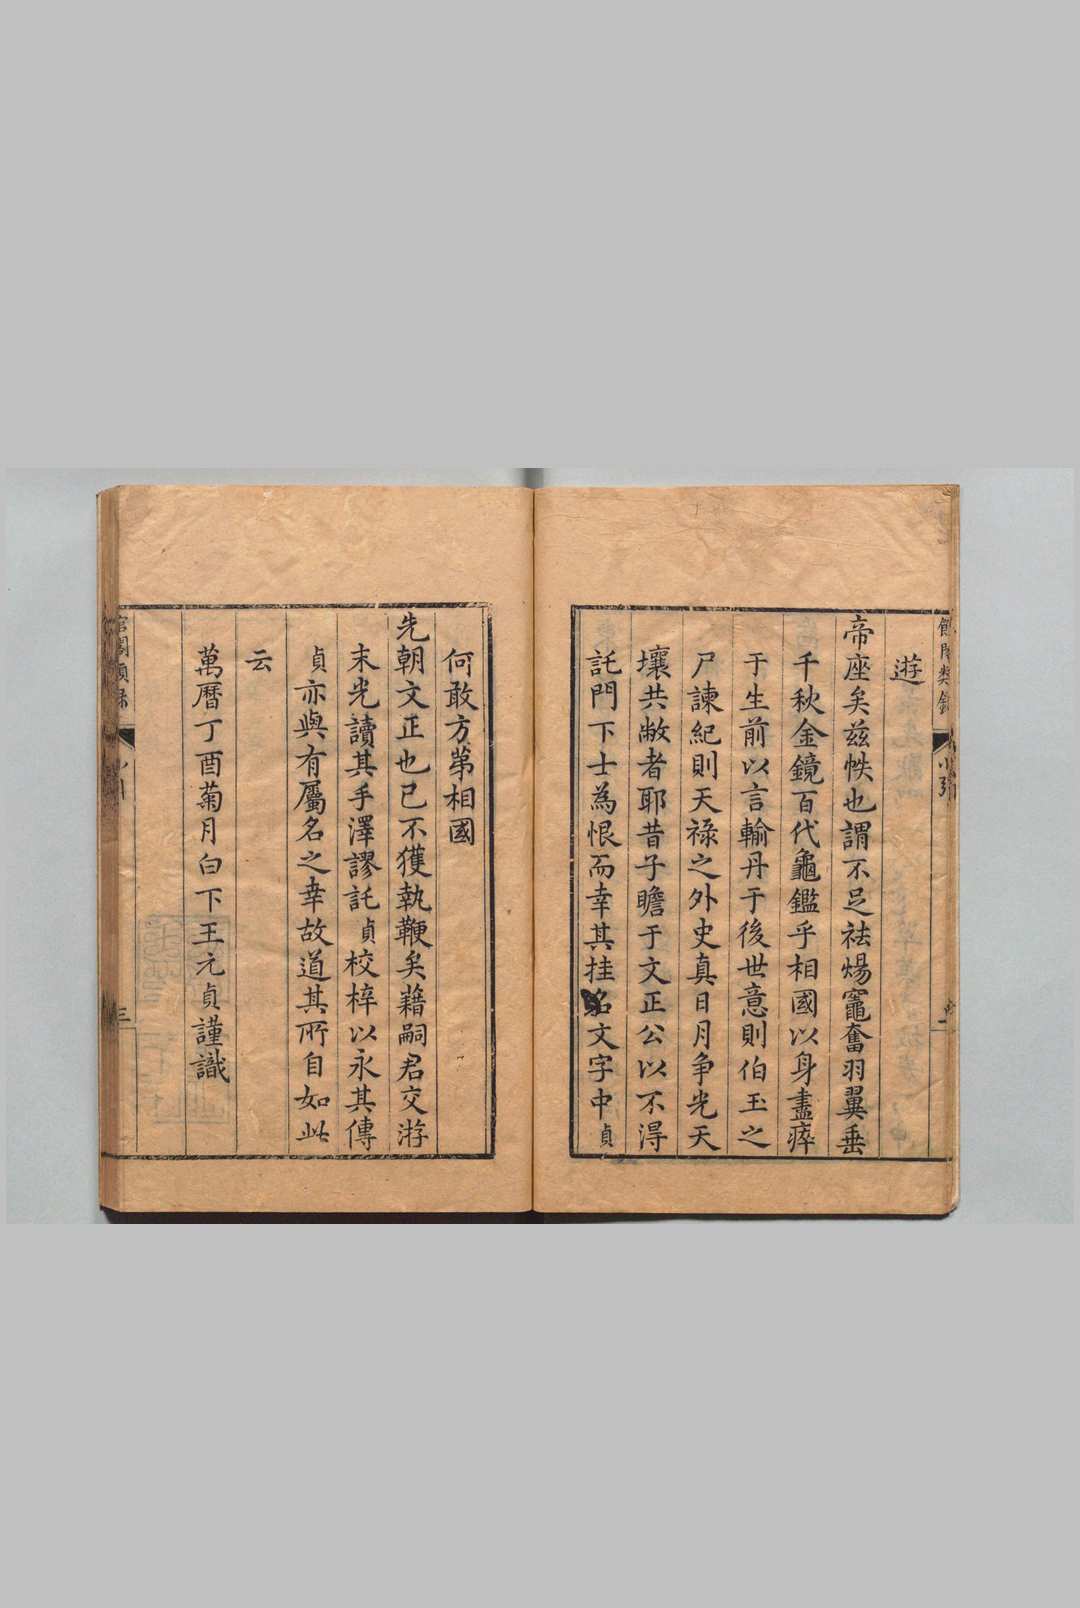 遊
帝座矣茲帙也謂不足祛煬竈奮羽翼垂
千秋金鏡百代龜鑑乎相國以身盡瘁
于生前以言輸丹于後世意則伯玉之
尸諫紀則天祿之外史真日月争光天
壤共敝者耶昔子瞻于文正公以不得
託門下士為恨而幸其挂名文字中貞
何敢方第相國
先朝文正也已不獲執鞭矣藉嗣君交游
末光讀其手澤謬託貞校梓以永其傳
貞亦與有屬名之幸故道其所自如此
云
萬曆丁酉菊月白下王元貞謹識
館閣類錄
小引
三